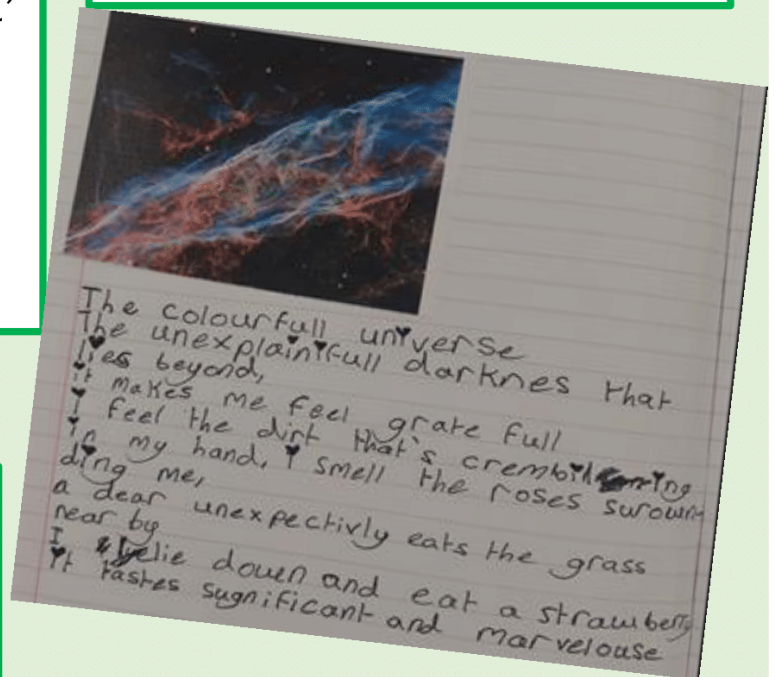 The colourfull universe
The unexplainifull darknes that
lies beyond,
it makes me feel grate full
I feel the dirt that's crembiling
in my hand, i smell the roses surown
ding me,
a dear unexpectivly eats the grass
near by
I lie down and eat a strawberry
it tastes sugnificant and marvelouse